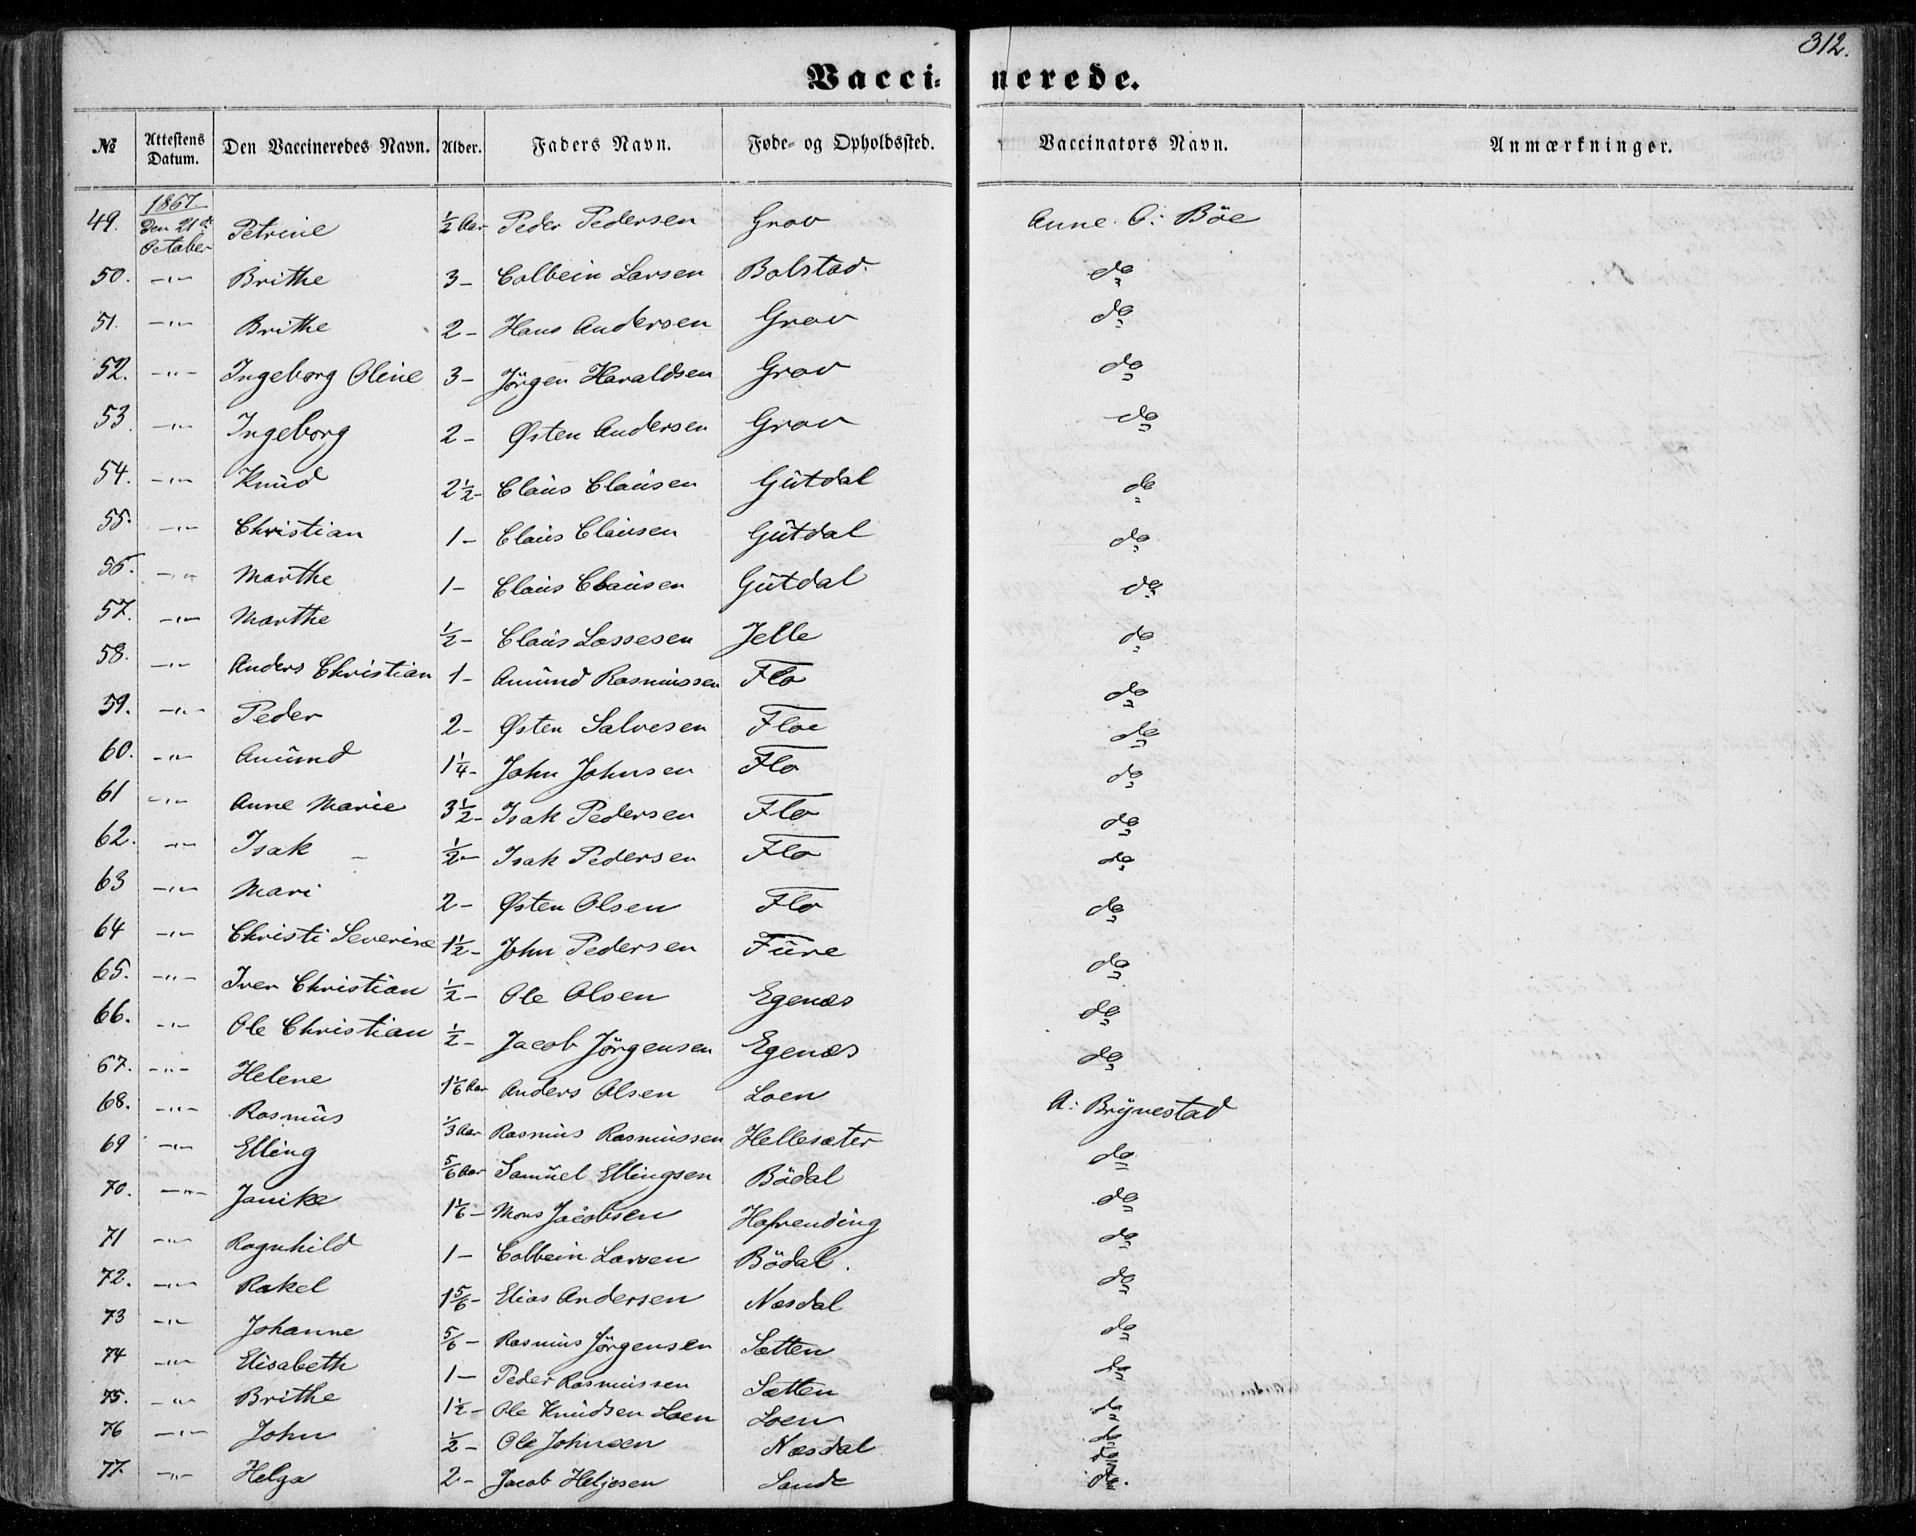 312.
Vaccinerede.
№ Attestens Datum. Den Vaccineredes Navn. Alder. Faders Navn. Føde- og Opholdssted. Vaccinators Navn. Anmærkninger.
49. 1867 Den 21de October Petrine ½ Aar Peder Pedersen Grov Anne O: Böe
50. -"- Brithe 3- Colbein Larsen Bolstad. do
51. -"- Brithe 2- Hans Andersen Grov do
52. -"- Ingeborg Oline 3- Jörgen Haraldsen Grov do
53. -"- Ingeborg 2- Østen Andersen Grov do
54. -"- Knud 2½- Claus Clausen Gutdal do
55. -"- Christian 1- Claus Clausen Gutdal do
56. -"- Marthe 1- Claus Clausen Gutdal do
57. -"- Marthe ½- Claus Lassesen Jelle do
58. -"- Anders Christian 1- Amund Rasmussen Flo do
59. -"- Peder 2- Østen Salvesen Floe do
60. -"- Amund 1¼- John Johnsen Flo do
61 -"- Anne Marie 3½- Isak Pedersen Flo do
62. -"- Isak ½- Isak Pedersen Flo do
63 -"- Mari 2- Østen Olsen Flo do
64 -"- Christi Severine 1½- John Pedersen Fure do
65. -"- Iver Christian ½- Ole Olsen Egenæs do
66. -"- Ole Christian ½- Jacob Jörgensen Egenæs do
67. -"- Helene 1⅙ Aar Anders Olsen Loen A: Brynestad
68. -"- Rasmus ⅓ Aar Rasmus Rasmussen Hellesæter do
69 -"- Elling ⅚ Aar Samuel Ellingsen Bödal do
70. -"- Janike 1⅙- Mons Jacobsen Hafrending do
71 -"- Ragnhild 1- Colbein Larsen Bödal. do
72. -"- Rakel 1⅚- Elias Andersen Næsdal do
73 -"- Johanne ⅚- Rasmus Jörgensen Sætten do
74 -"- Elisabeth 1- Peder Rasmussen Sætten do
75. -"- Brithe 1½- Ole Knudsen Loen Loen do
76 -"- John ½- Ole Johnsen Næsdal do
77. -"- Helga 2- Jacob Heljesen Sande do.